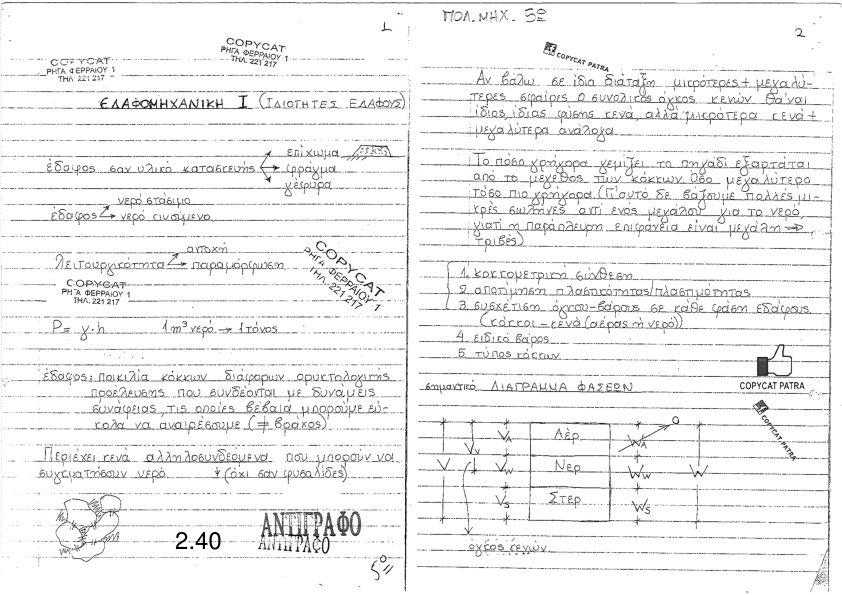 1
COPYCAT
ΡΗΓΑ ΦΕΡΡΑΙΟΥ 1
ΤΗΛ. 221 217
COPYCAT
ΡΗΓΑ ΦΕΡΡΑΙΟΥ 1
ΤΗΛ. 221 217
ΕΔΑΦΟΜΗΧΑΝΙΚΗ Ι (ΙΔΙΟΤΗΤΕΣ ΕΔΑΦΟΥΣ)
επίχωμα
έδαφος σαν υλικό κατασκευής φράγμα
γέφυρα
νερό στάσιμο
έδαφος νερό κινούμενο
αντοχή
λειτουργικότητα παραμόρφωση
COPYCAT
ΡΗΓΑ ΦΕΡΡΑΙΟΥ 1
ΤΗΛ. 221 217
COPYCAT
ΡΗΓΑ ΦΕΡΡΑΙΟΥ 1
ΤΗΛ. 221 217
P = γ·h 1 m³ νερό → 1 τόνος
έδαφος: ποικιλία κόκκων διάφορων ορυκτολογικής
προέλευσης που συνδέονται με δυνάμεις
συνάφειας, τις οποίες βέβαια μπορούμε εύ-
κολα να αναιρέσουμε (≠ βράχος)
Περιέχει κενά αλληλοσυνδεόμενα που μπορούν να
συγκρατήσουν νερό. (όχι σαν φυσαλίδες)
2.40
ΑΝΤΙΓΡΑΦΟ
ΑΝΤΙΓΡΑΦΟ
5ο
ΠΟΛ. ΜΗΧ. 5ο
2
COPYCAT PATRA
Αν βάλω σε ίδια διάταξη μικρότερες + μεγαλύ-
τερες σφαίρες ο συνολικός όγκος κενών θα'ναι
ίδιος, ίδιας φύσης κενά, αλλά μικρότερα κενά +
μεγαλύτερα ανάλογα.
Το πόσο γρήγορα γεμίζει το πηγάδι εξαρτάται
από το μέγεθος των κόκκων. Όσο μεγαλύτερο
τόσο πιο γρήγορα. (Γι'αυτό δε βάζουμε πολλές μι-
κρές σωλήνες αντί ενός μεγάλου για το νερό,
γιατί η παράπλευρη επιφάνεια είναι μεγάλη →
τριβές)
1. κοκκομετρική σύνθεση
2. αποτίμηση πλαστικότητας/πλασιμότητας
3. συσχέτιση όγκου-βάρους σε κάθε φάση εδάφους
(κόκκοι - κενά (αέρας ή νερό))
4. ειδικό βάρος
5. τύπος κόκκων
COPYCAT PATRA
σημαντικό ΔΙΑΓΡΑΜΜΑ ΦΑΣΕΩΝ
COPYCAT PATRA
0
V_A Αέρ W_A
V V_v V_W Νερ W_W W
V_S Στερ W_S
όγκος κενών